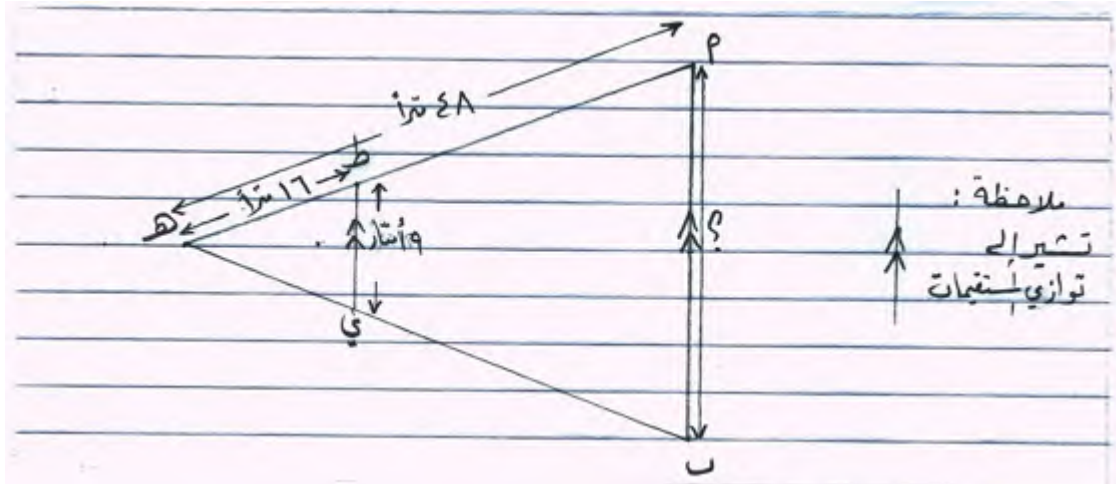 م
٤٨ مترأ
ط
١٦ مترأ
هـ
٩ أمتار
؟
ي
ب
ملاحظة :
تشير إلى
توازي المستقيمات